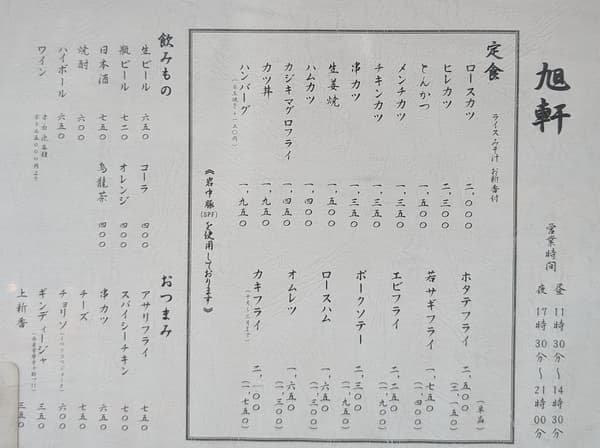 旭軒
営業時間 昼 11時30分〜14時30分
夜 17時30分〜21時00分
定食 ライスみそ汁 お新香付
ロースカツ 二、〇〇〇
ヒレカツ 二、三〇〇
とんかつ 一、五〇〇
メンチカツ 一、三五〇
チキンカツ 一、三五〇
串カツ 一、三五〇
生姜焼 一、五〇〇
ハムカツ 一、四〇〇
カジキマグロフライ 一、四五〇
カツ丼 一、九五〇
ハンバーグ 一、九五〇
(単品)
ホタテフライ 二、五〇〇 (二、一五〇)
若サギフライ 一、七五〇 (一、四〇〇)
エビフライ 二、二五〇 (一、九〇〇)
ポークソテー 二、三〇〇 (一、九五〇)
ロースハム 一、六五〇 (一、三〇〇)
オムレツ 一、六五〇 (一、三〇〇)
カキフライ 二、一〇〇 (一、七五〇)
《岩中豚(SPF)を使用しております》
飲みもの
生ビール 六五〇
瓶ビール 七二〇
日本酒 七五〇
焼酎 六〇〇
ハイボール 六五〇
ワイン
コーラ 四〇〇
オレンジ 四〇〇
烏龍茶 四〇〇
おつまみ
アサリフライ 七五〇
スパイシーチキン 七〇〇
串カツ 六五〇
チーズ 七五〇
チョリソ 六〇〇
ギンディージャ 三五〇
上新香 三五〇